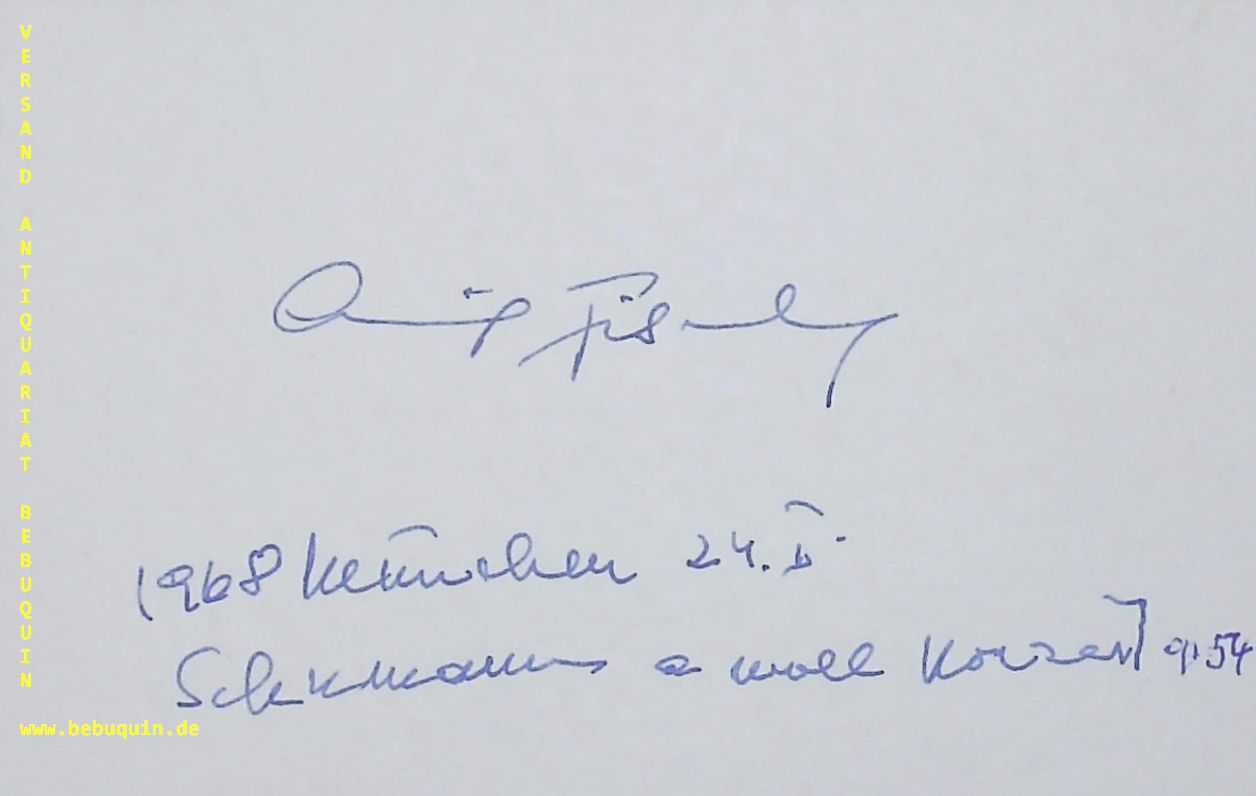 VERSAND ANTIQUARIAT BEBUQUIN
Annie Fischer
1968 München 24. II.
Schumann a moll Konzert op 54
www.bebuquin.de